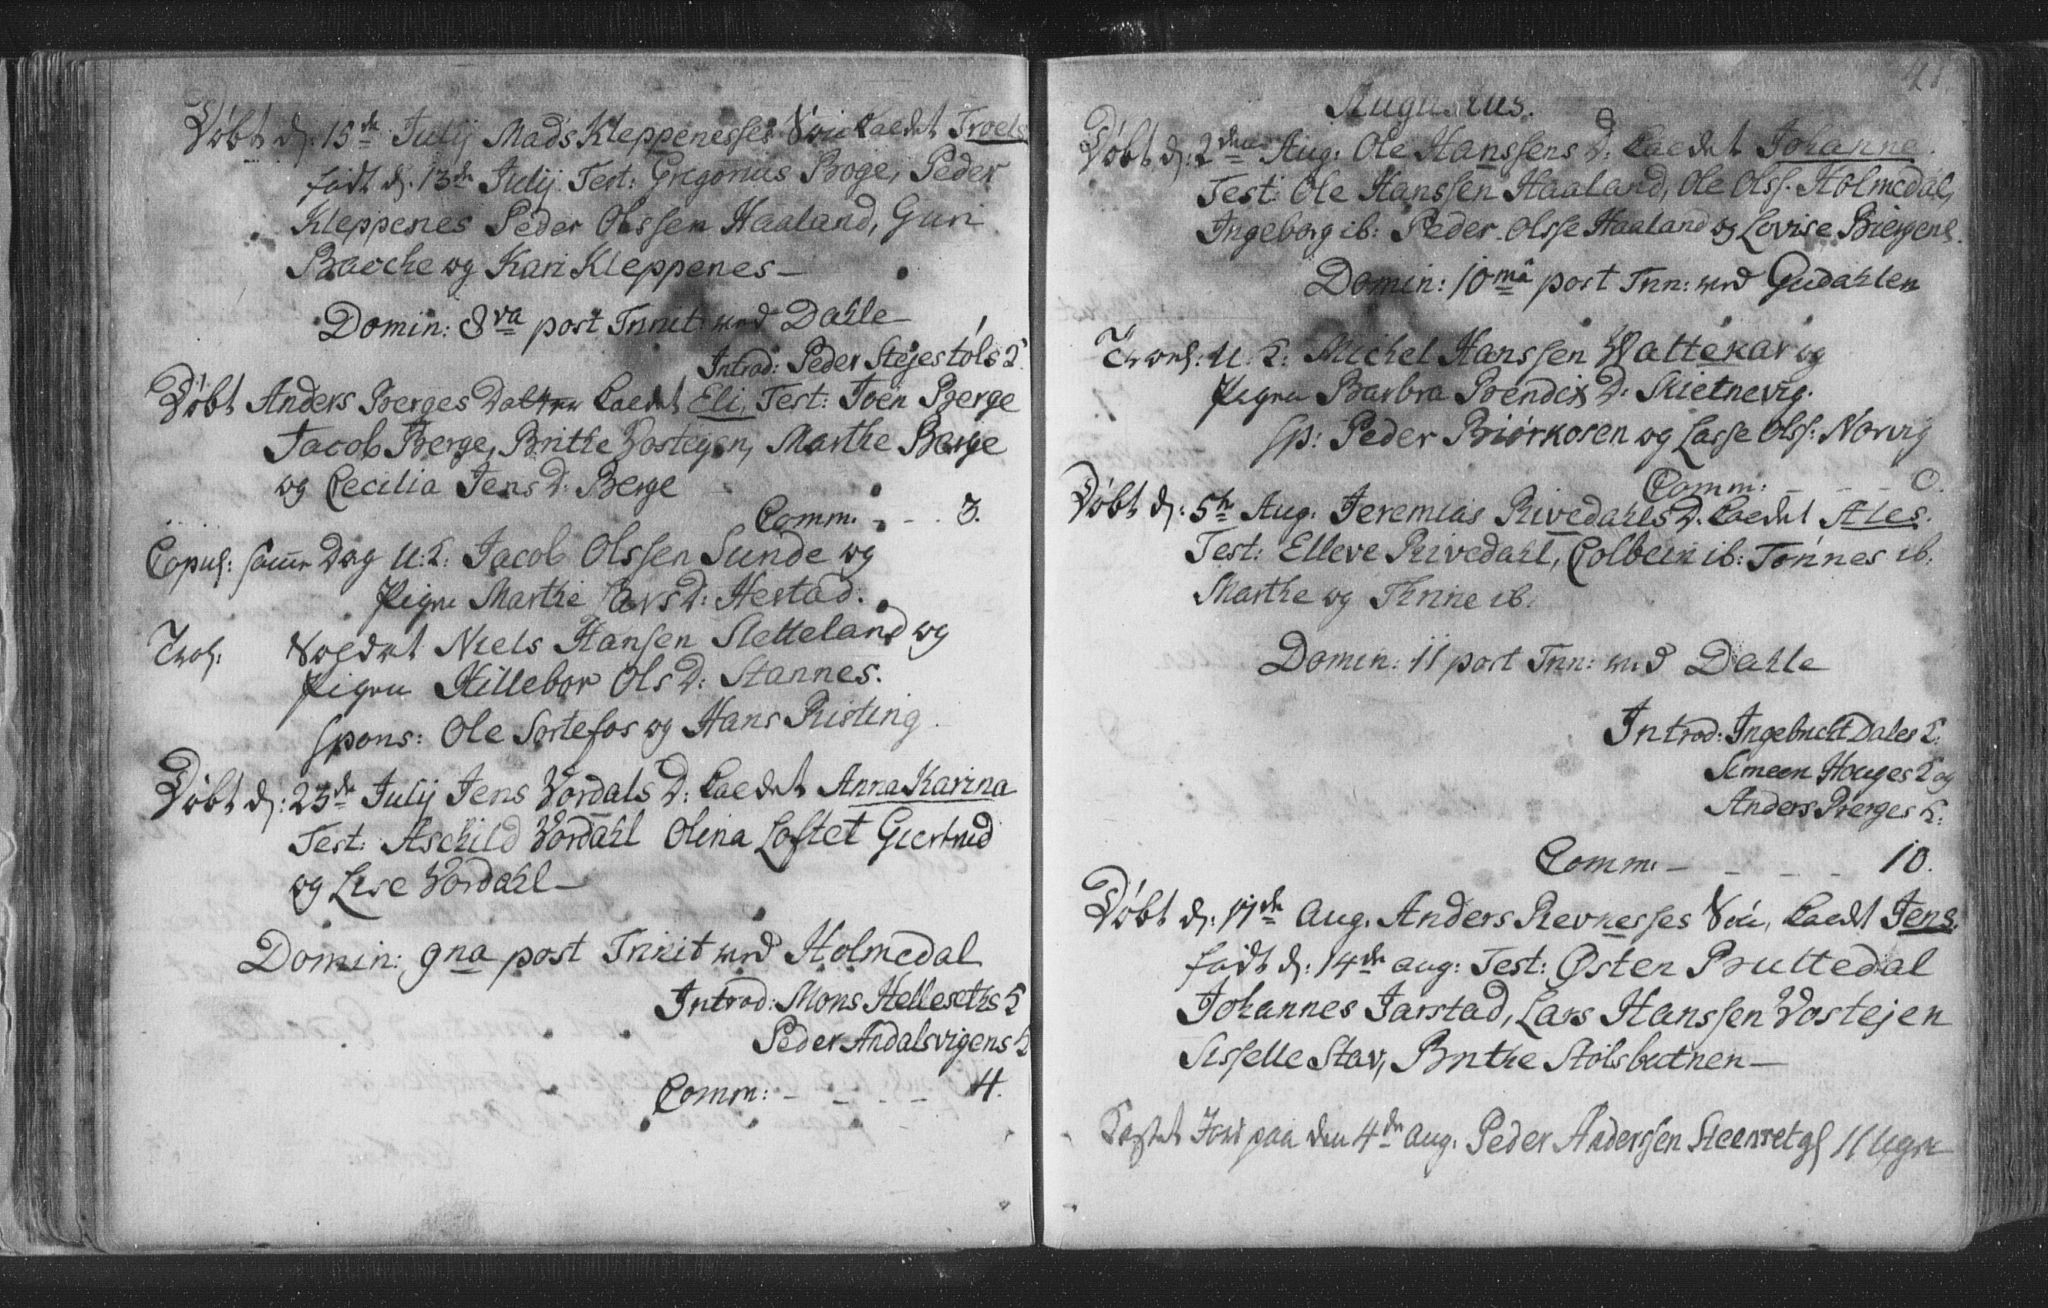 Døbt d: 15de Julij Mads Kleppenesses Søn kaedet Troels
født d. 13de Julij Test: Gregorius Boge, Peder
Kleppenes Peder Olssen Haaland, Guri
Baache og Kari Kleppenes
Domin: 8va post Trinit: ved Dahle
Introd: Peder Stejestøls K
Døbt Anders Berges Datter kaedet Eli, Test: Joen Berge
Jacob Berge, Brithe Vostejen, Marthe Berge
og Cecilia Jens D: Berge
Comm. - - - 3.
Copul: samme Dag U: K: Jacob Olssen Sunde og
Pigen Marthe Lars D: Hestad.
Trol: Soldat Niels Hansen Sletteland og
Pigen Hillebor Ols D: Stannes.
Spons: Ole Sortefos og Hans Risting
Døbt d: 23de Julij Jens Vordals D: kaedet Anna Karina
Test: Aschild Vordahl Olina Loftet Giertrud
og Lise Vordahl
Domin: 9na post Trinit ved Holmedal
Introd: Mons Helleseths K
Peder Andalsvigens K
Comm: - - - - 4.
41.
Augustus.
Døbt d: 2den Aug: Ole Hanssens D: kaedet Johanne.
Test: Ole Hanssen Haaland, Ole Olss. Holmedal,
Ingeborg ib: Peder Olsse Haaland og Lovise
Domin: 10ma post Trin: ved Gudahlen
Trovl: U: K: Michel Hanssen Wattekar og
Pigen Barbra Bendix D: Skietnevig.
Sp: Peder Biørkosen og Lasse Olss: Norvig
Comm: - - - 0.
Døbt d: 5te Aug: Jeremias Rivedahls D. kaedet Ales.
Test: Elleve Rivedahl, Colbein ib: Tønnes ib.
Marthe og Thrine ib.
Domin: 11 post Trin: ved Dahle
Introd: Ingebricht Dales K:
Simeon Houges K og
Anders Berges K:
Comm: - - - - 10.
Døbt d: 17de Aug. Anders Revnesses Søn, kaedt Jens.
født d: 14de aug: Test: Østen Bruttedal
Johannes Jarstad, Lars Hanssen Vostejen
Sisselle Stav, Brithe Stølsbutnen
Kastet Jord paa den 4de aug. Peder Anderssen 11 Uger